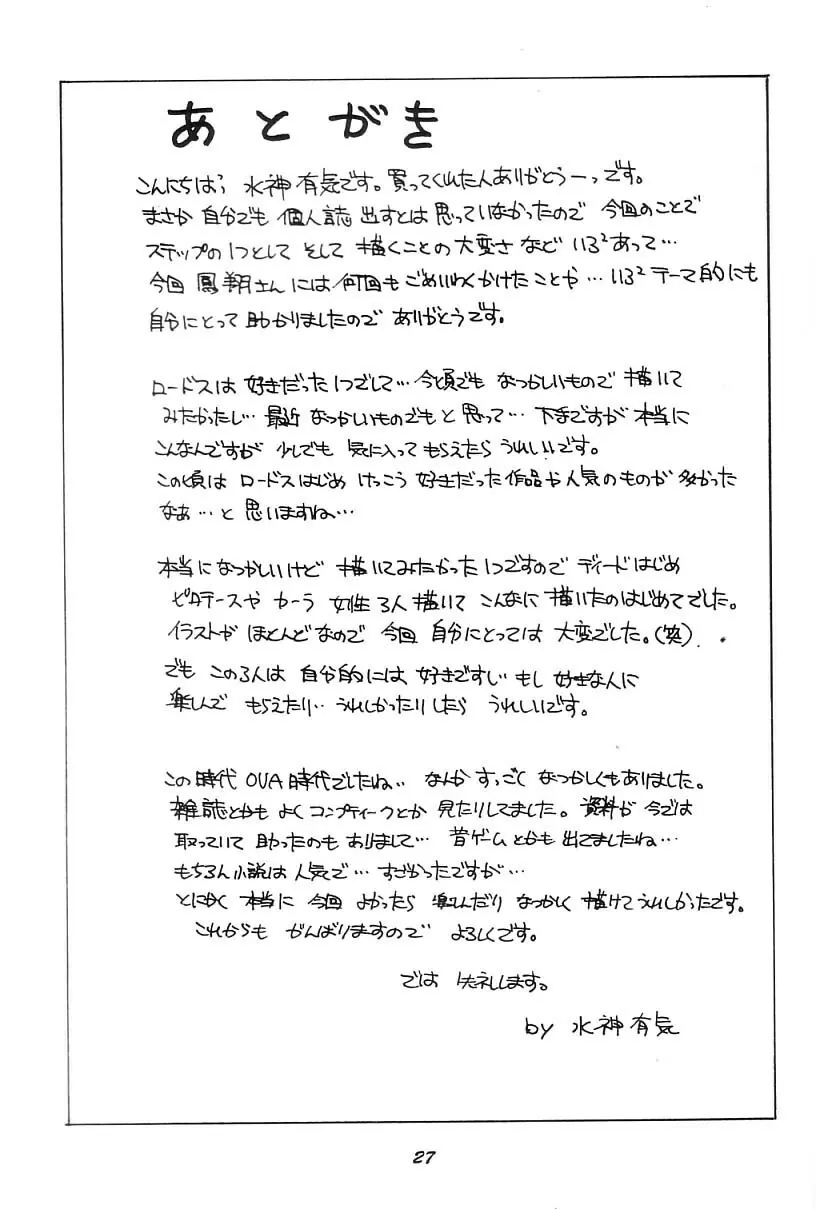 あとがき
こんにちはっ 水神有気です。買ってくれた人ありがとうーっです。
まさか 自分でも 個人誌 出すとは 思っていなかったので 今回のことで
ステップの1つとして そして 描くことの大変さ など いろ²あって…
今回 鳳翔さんには何回も ごめいわくかけたことや… いろ²テーマ的にも
自分にとって 助かりましたので ありがとうです。
ロードスは 好きだった1つでして… 今頃でも なつかしいもので 描いて
みたかったし… 最近 なつかしいものでもと 思って… 下手ですが 本当に
こんなんですが 少しでも 気に入って もらえたら うれしいです。
この頃は ロードスはじめ けっこう 好きだった作品や人気のものが 多かった
なぁ…と 思いますね…
本当になつかしいけど 描いてみたかった1つですので ディードはじめ
ピロテースや カーラ 女性3人描いて こんなに 描いたのはじめてでした。
イラストが ほとんどなので 今回 自分にとっては 大変でした。(笑)
でも この3人は 自分的には、好きですし もし 好きな人に
楽しんで もらえたり… うれしかったりしたら うれしいです。
この時代 OVA時代でしたね… なんか すっごく なつかしくもありました。
雑誌とかも よく コンプティークとか 見たりしてました。資料が 今では
取っていて 助ったのも ありまして… 昔ゲームとかも 出てましたね…
もちろん小説は 人気で… すごかったですが…
とにかく 本当に 今回 よかったら 楽しんだり なつかしく 描けてうれしかったです。
これからも がんばりますので よろしくです。
では 失礼します。
by 水神有気
27